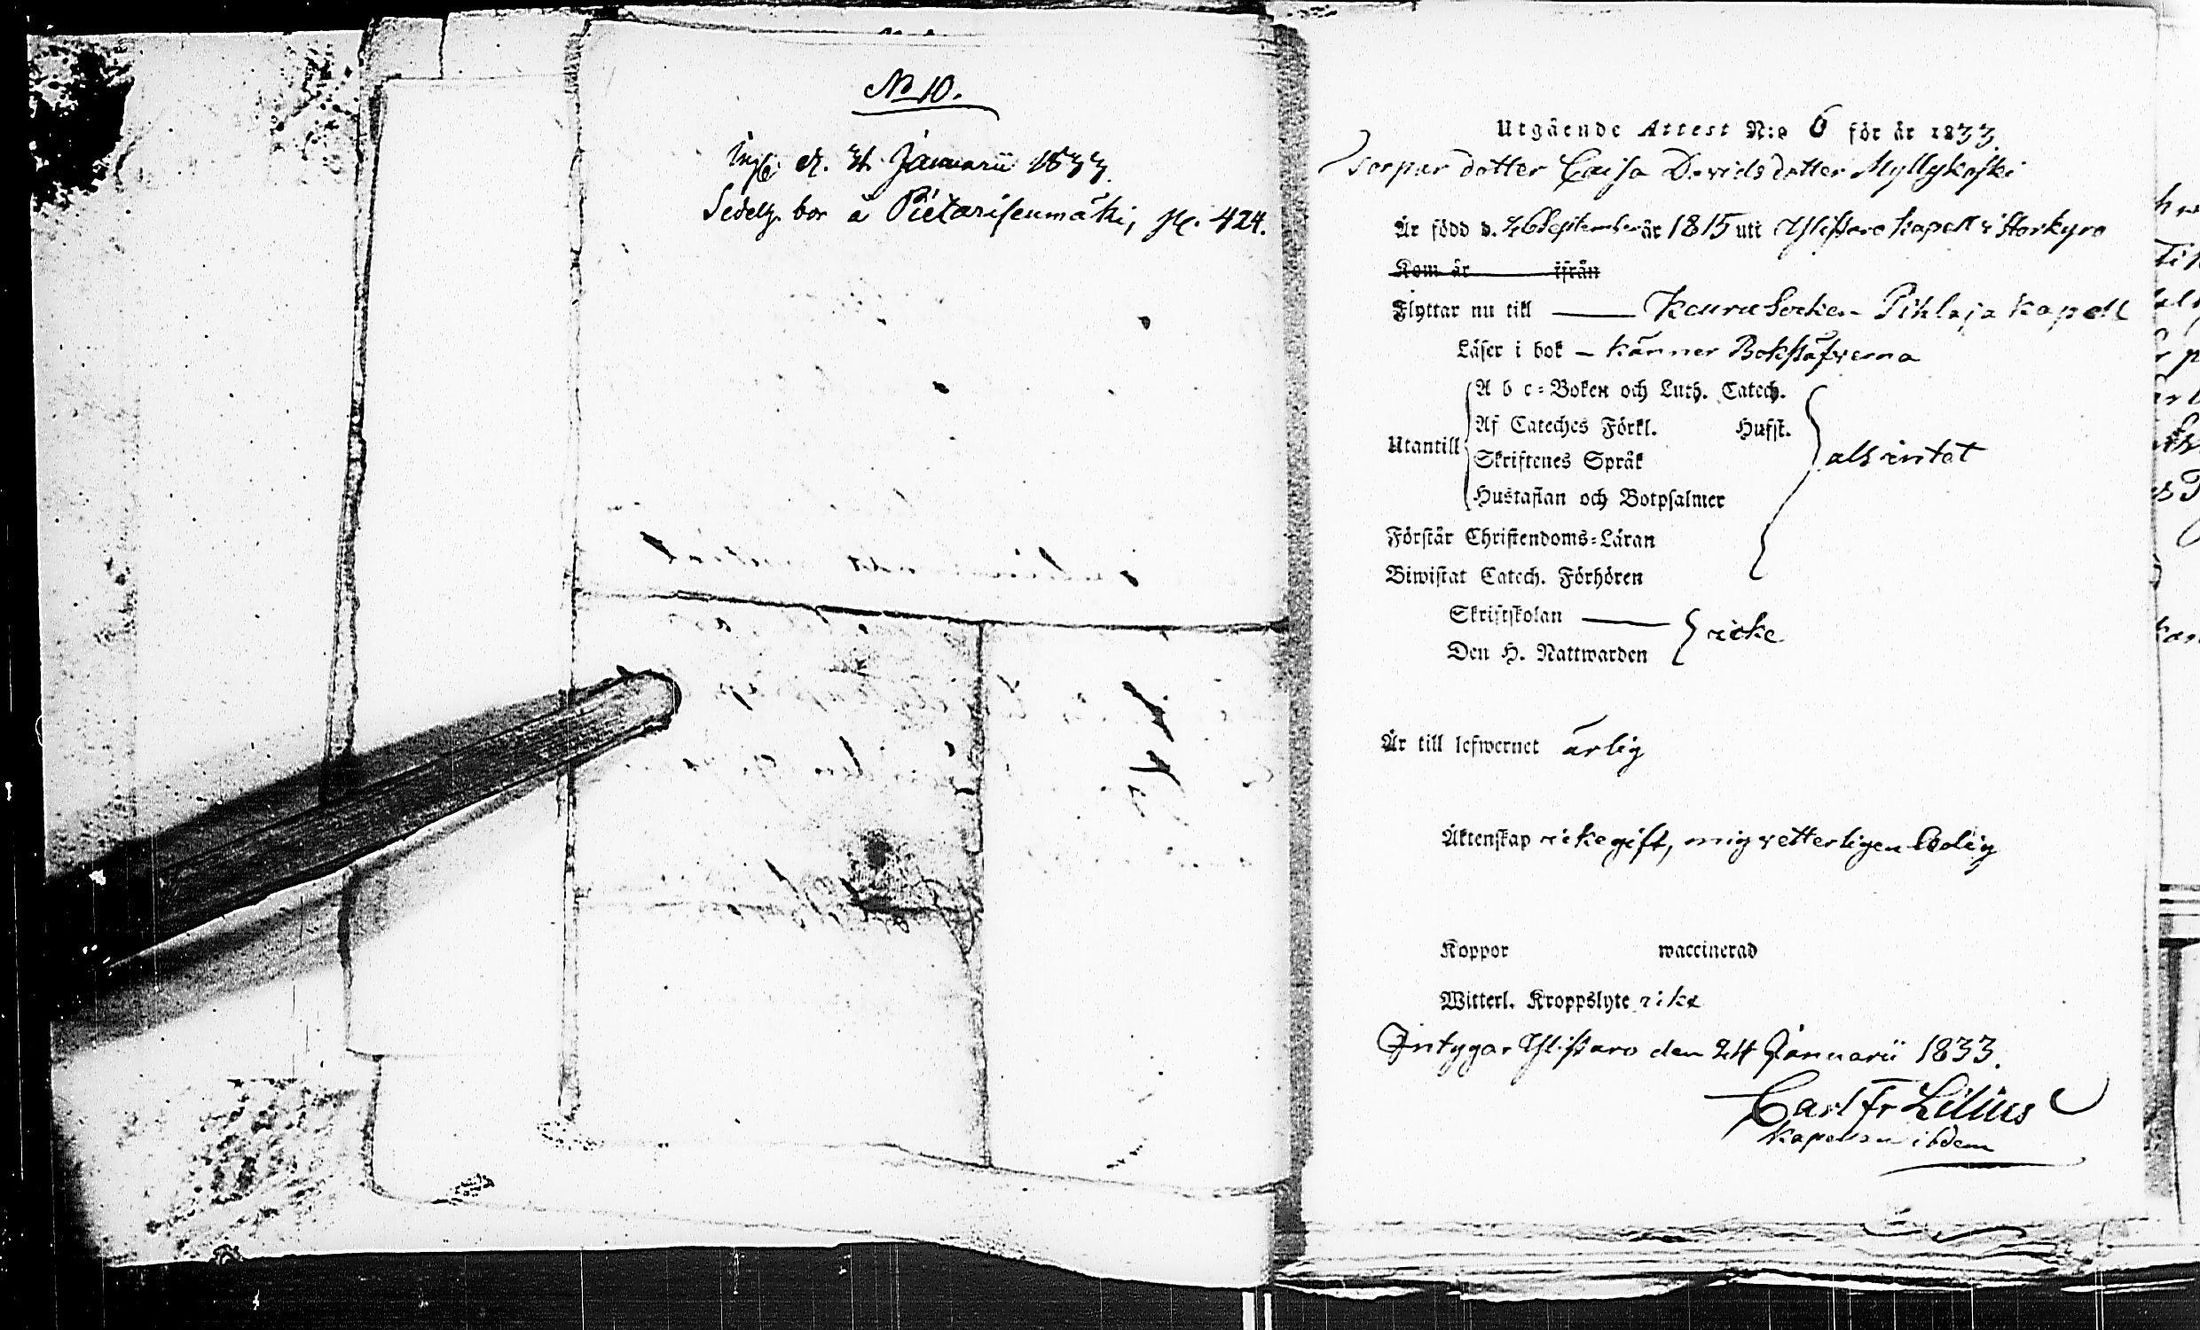 No 10.
d. 31 Januarii 1833.
Sedelg. bor å Pietarisenmäki, 424.
Utgående Attest N:o 6 för år 1833.
Torpar dotter Caisa Davids dotter Myllykoski
Är född d. 26 September år 1815 uti Ylistaro kapell i Storkyro
Kom år ifrån
Flyttar nu till — Keuru Socken Pihlaja kapell
Läser i bok – känner Bokstäfverna
A b c-Boken och Luth. Catech.
Af Cateches Förkl. Hufst.
Utantill
Skriftenes Språk
alsintet
Hustaflan och Botpsalmer
Förstår Christendoms-Läran
Biwistat Catech. Förhören
Skriftskolan —
icke
Den H. Nattwarden
Är till lefwernet ärlig
Äktenskap icke gift, mig vetterligen ledig
Koppor waccinerad
Witterl. Kroppslyte icke
Intygar Ylistaro den 24 Januarii 1833.
Carl Fr Lilius
Kapellan ibdem